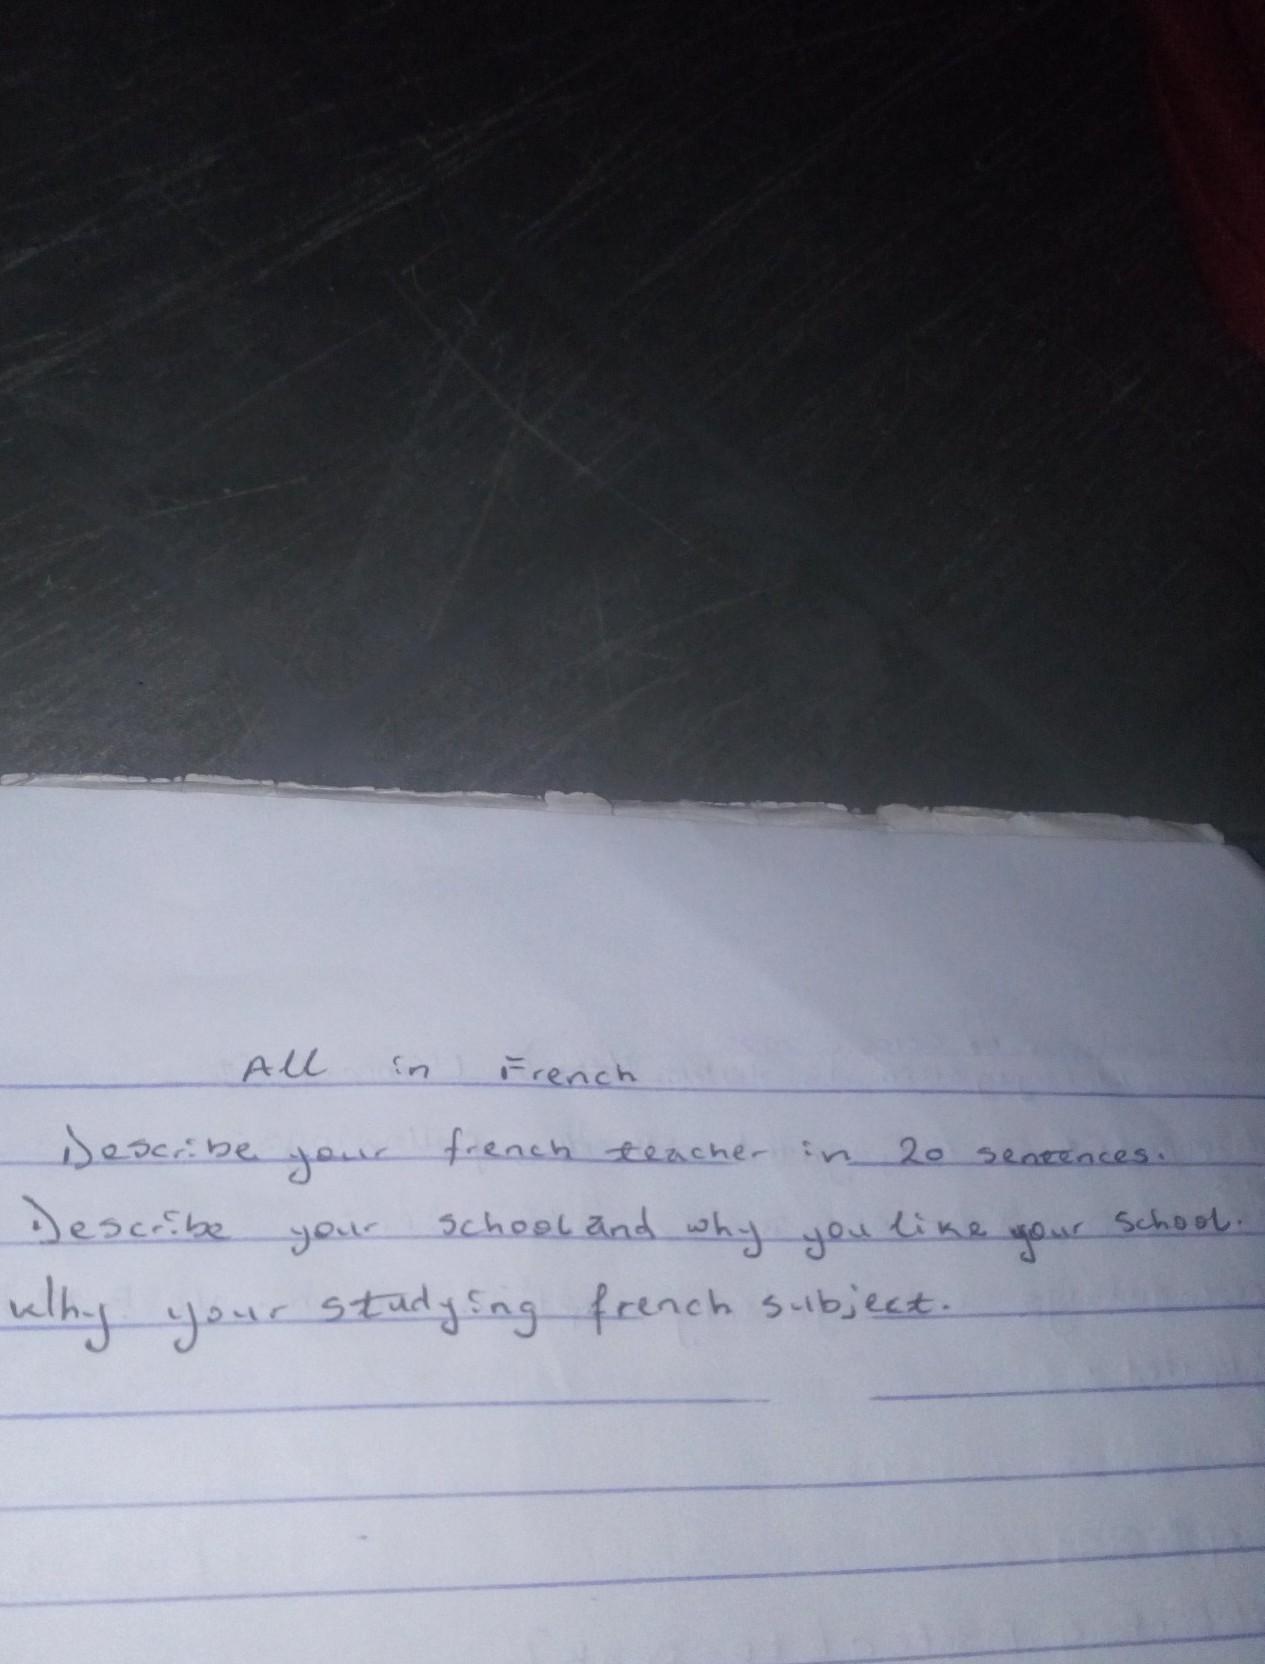 All in French
Describe your french teacher in 20 sentences.
Describe your school and why you like your school.
Why your studying french subject.